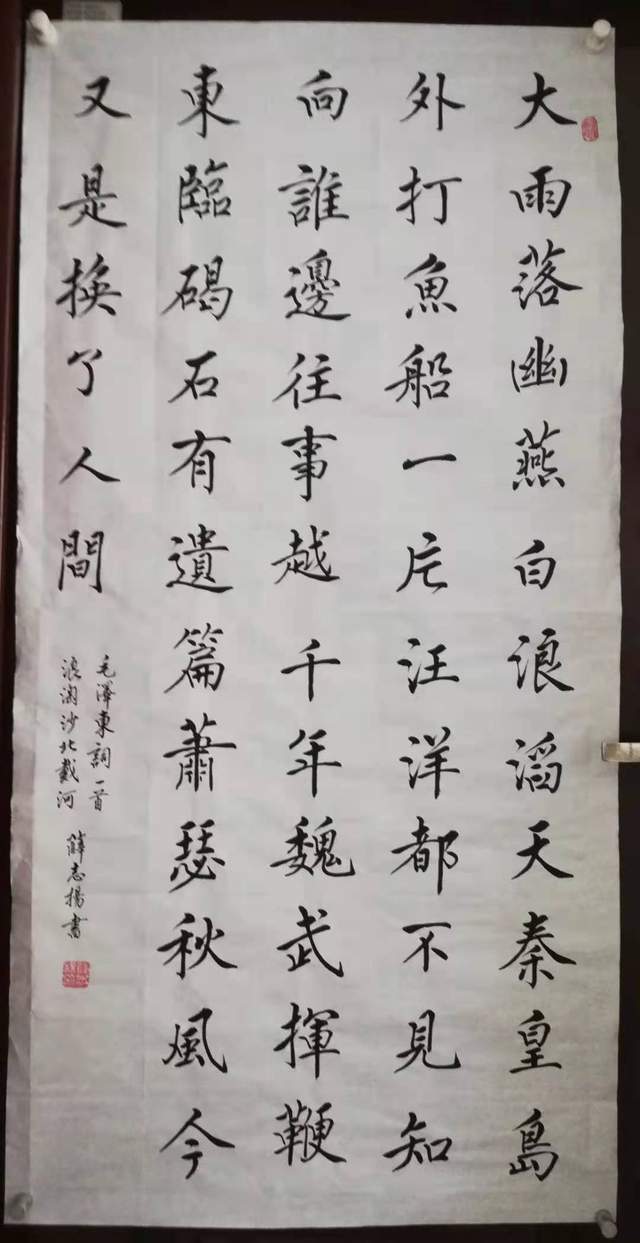 大雨落幽燕白浪滔天秦皇島
外打魚船一片汪洋都不見知
向誰邊往事越千年魏武揮鞭
東臨碣石有遺篇蕭瑟秋風今
又是換了人間
毛澤東詞一首
浪淘沙北戴河 薛志揚書